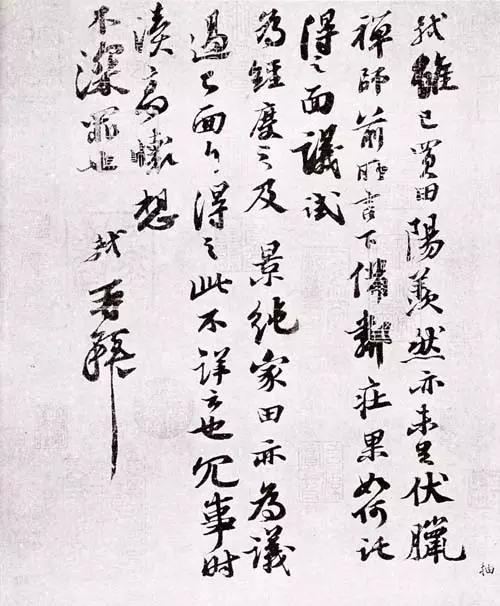 軾雖已買田陽羨然亦未足伏臘
禪師前所言下備鄰莊果如何託
得之面議試
為經度之及 景純家田亦為議
過已面白得之此不詳云也冗事時
瀆高懷想
不深罪也
軾 再拜